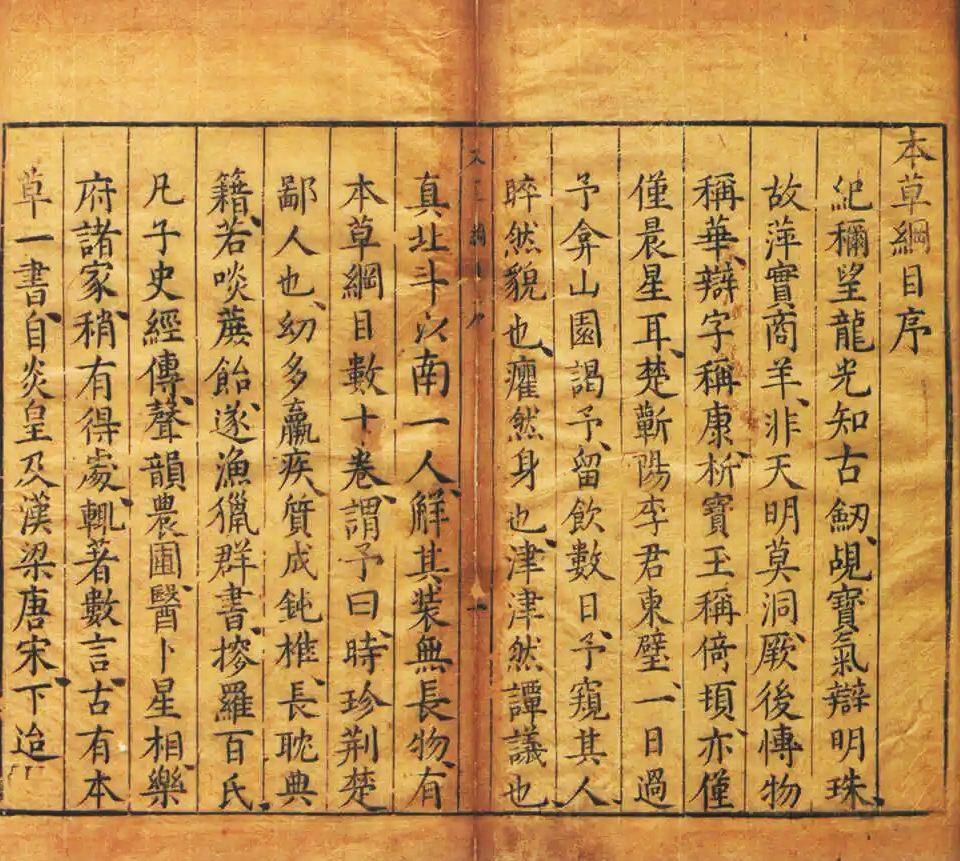 本草綱目序
紀穪望龍光知古劒、覘寶氣辯明珠、
故萍實商羊、非天明莫洞、厥後博物
稱華、辯字稱康、析寶玉稱倚頓、亦僅
僅晨星耳、楚蘄陽李君東璧、一日過
予弇山園謁予、留飲數日、予窺其人、
睟然貌也、癯然身也、津津然譚議也、
真北斗以南一人、解其裝無長物、有
本草綱目數十卷、謂予曰、時珍荊楚
鄙人也、幼多羸疾、質成鈍椎、長、耽典
籍、若啖蔗飴、遂漁獵群書、搜羅百氏、
凡子史經傳、聲韻農圃、醫卜星相、樂
府諸家、稍有得處、輒著數言、古有本
草一書、自炎皇及漢梁唐宋、下迨